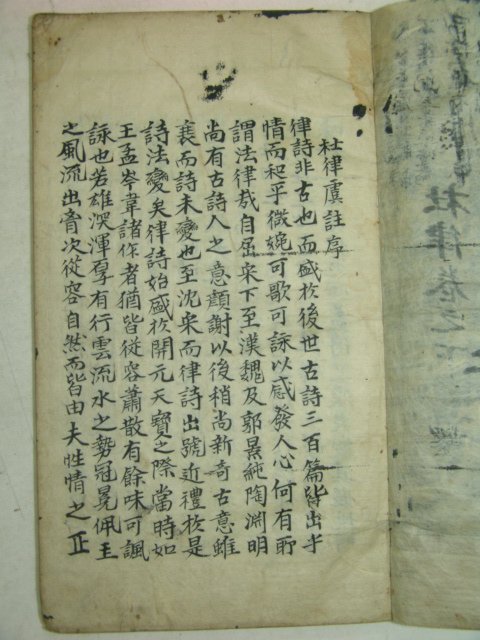 杜律卷之
杜律虞註序
律詩非古也而盛於後世古詩三百篇皆出乎
情而和乎微婉可歌可詠以感發人心何有所
謂法律哉自屈宋下至漢魏及郭景純陶淵明
尚有古詩人之意顔謝以後稍尚新奇古意雖
衰而詩未變也至沈宋而律詩出號近禮於是
詩法變矣律詩始盛於開元天寶之際當時如
王孟岑韋諸作者猶皆從容蕭散有餘味可諷
詠也若雄深渾厚有行雲流水之勢冠冕佩玉
之風流出次從容自然而皆由夫性情之正